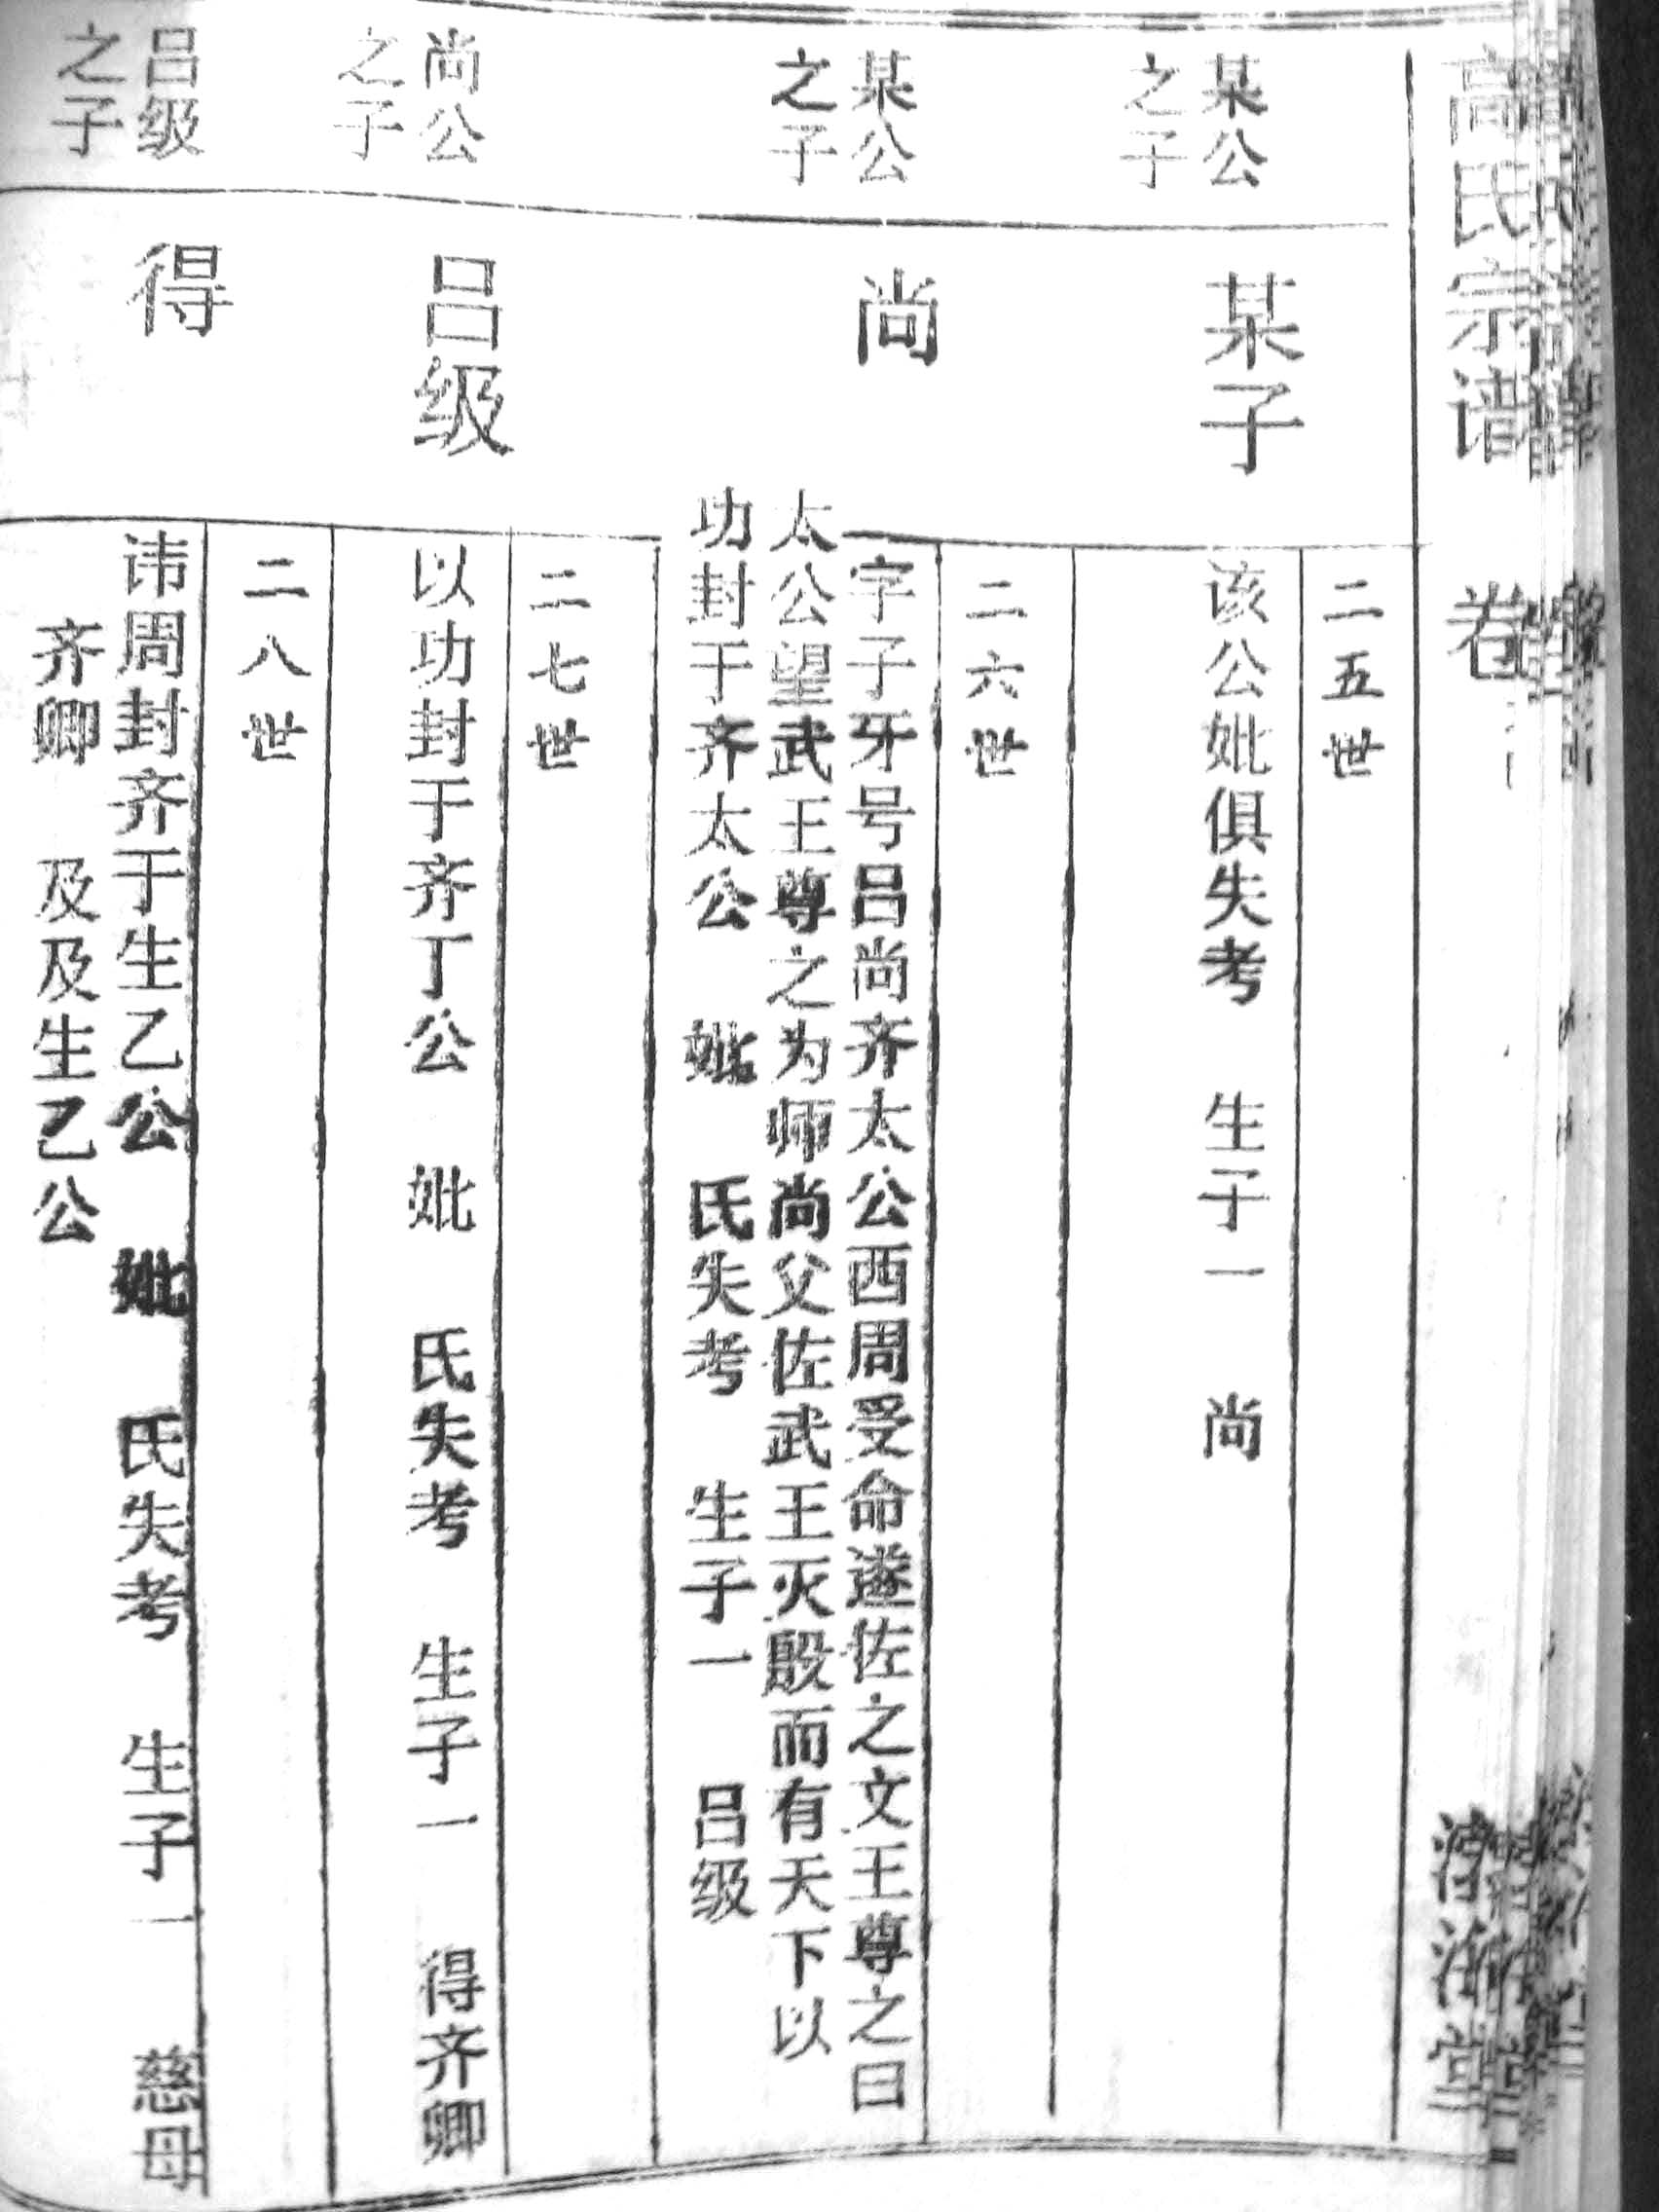 高氏宗谱 卷一
某公
之子
某子
二五世
该公妣俱失考 生子一 尚
某公
之子
尚
二六世
字子牙号吕尚齐太公西周受命遂佐之文王尊之曰
太公望武王尊之为师尚父佐武王灭殷而有天下以
功封于齐太公 妣 氏失考 生子一 吕级
尚公
之子
吕级
二七世
以功封于齐丁公 妣 氏失考 生子一 得齐卿
吕级
之子
得
二八世
讳周封齐于生乙公 妣 氏失考 生子一 慈母
齐卿 及及生乙公